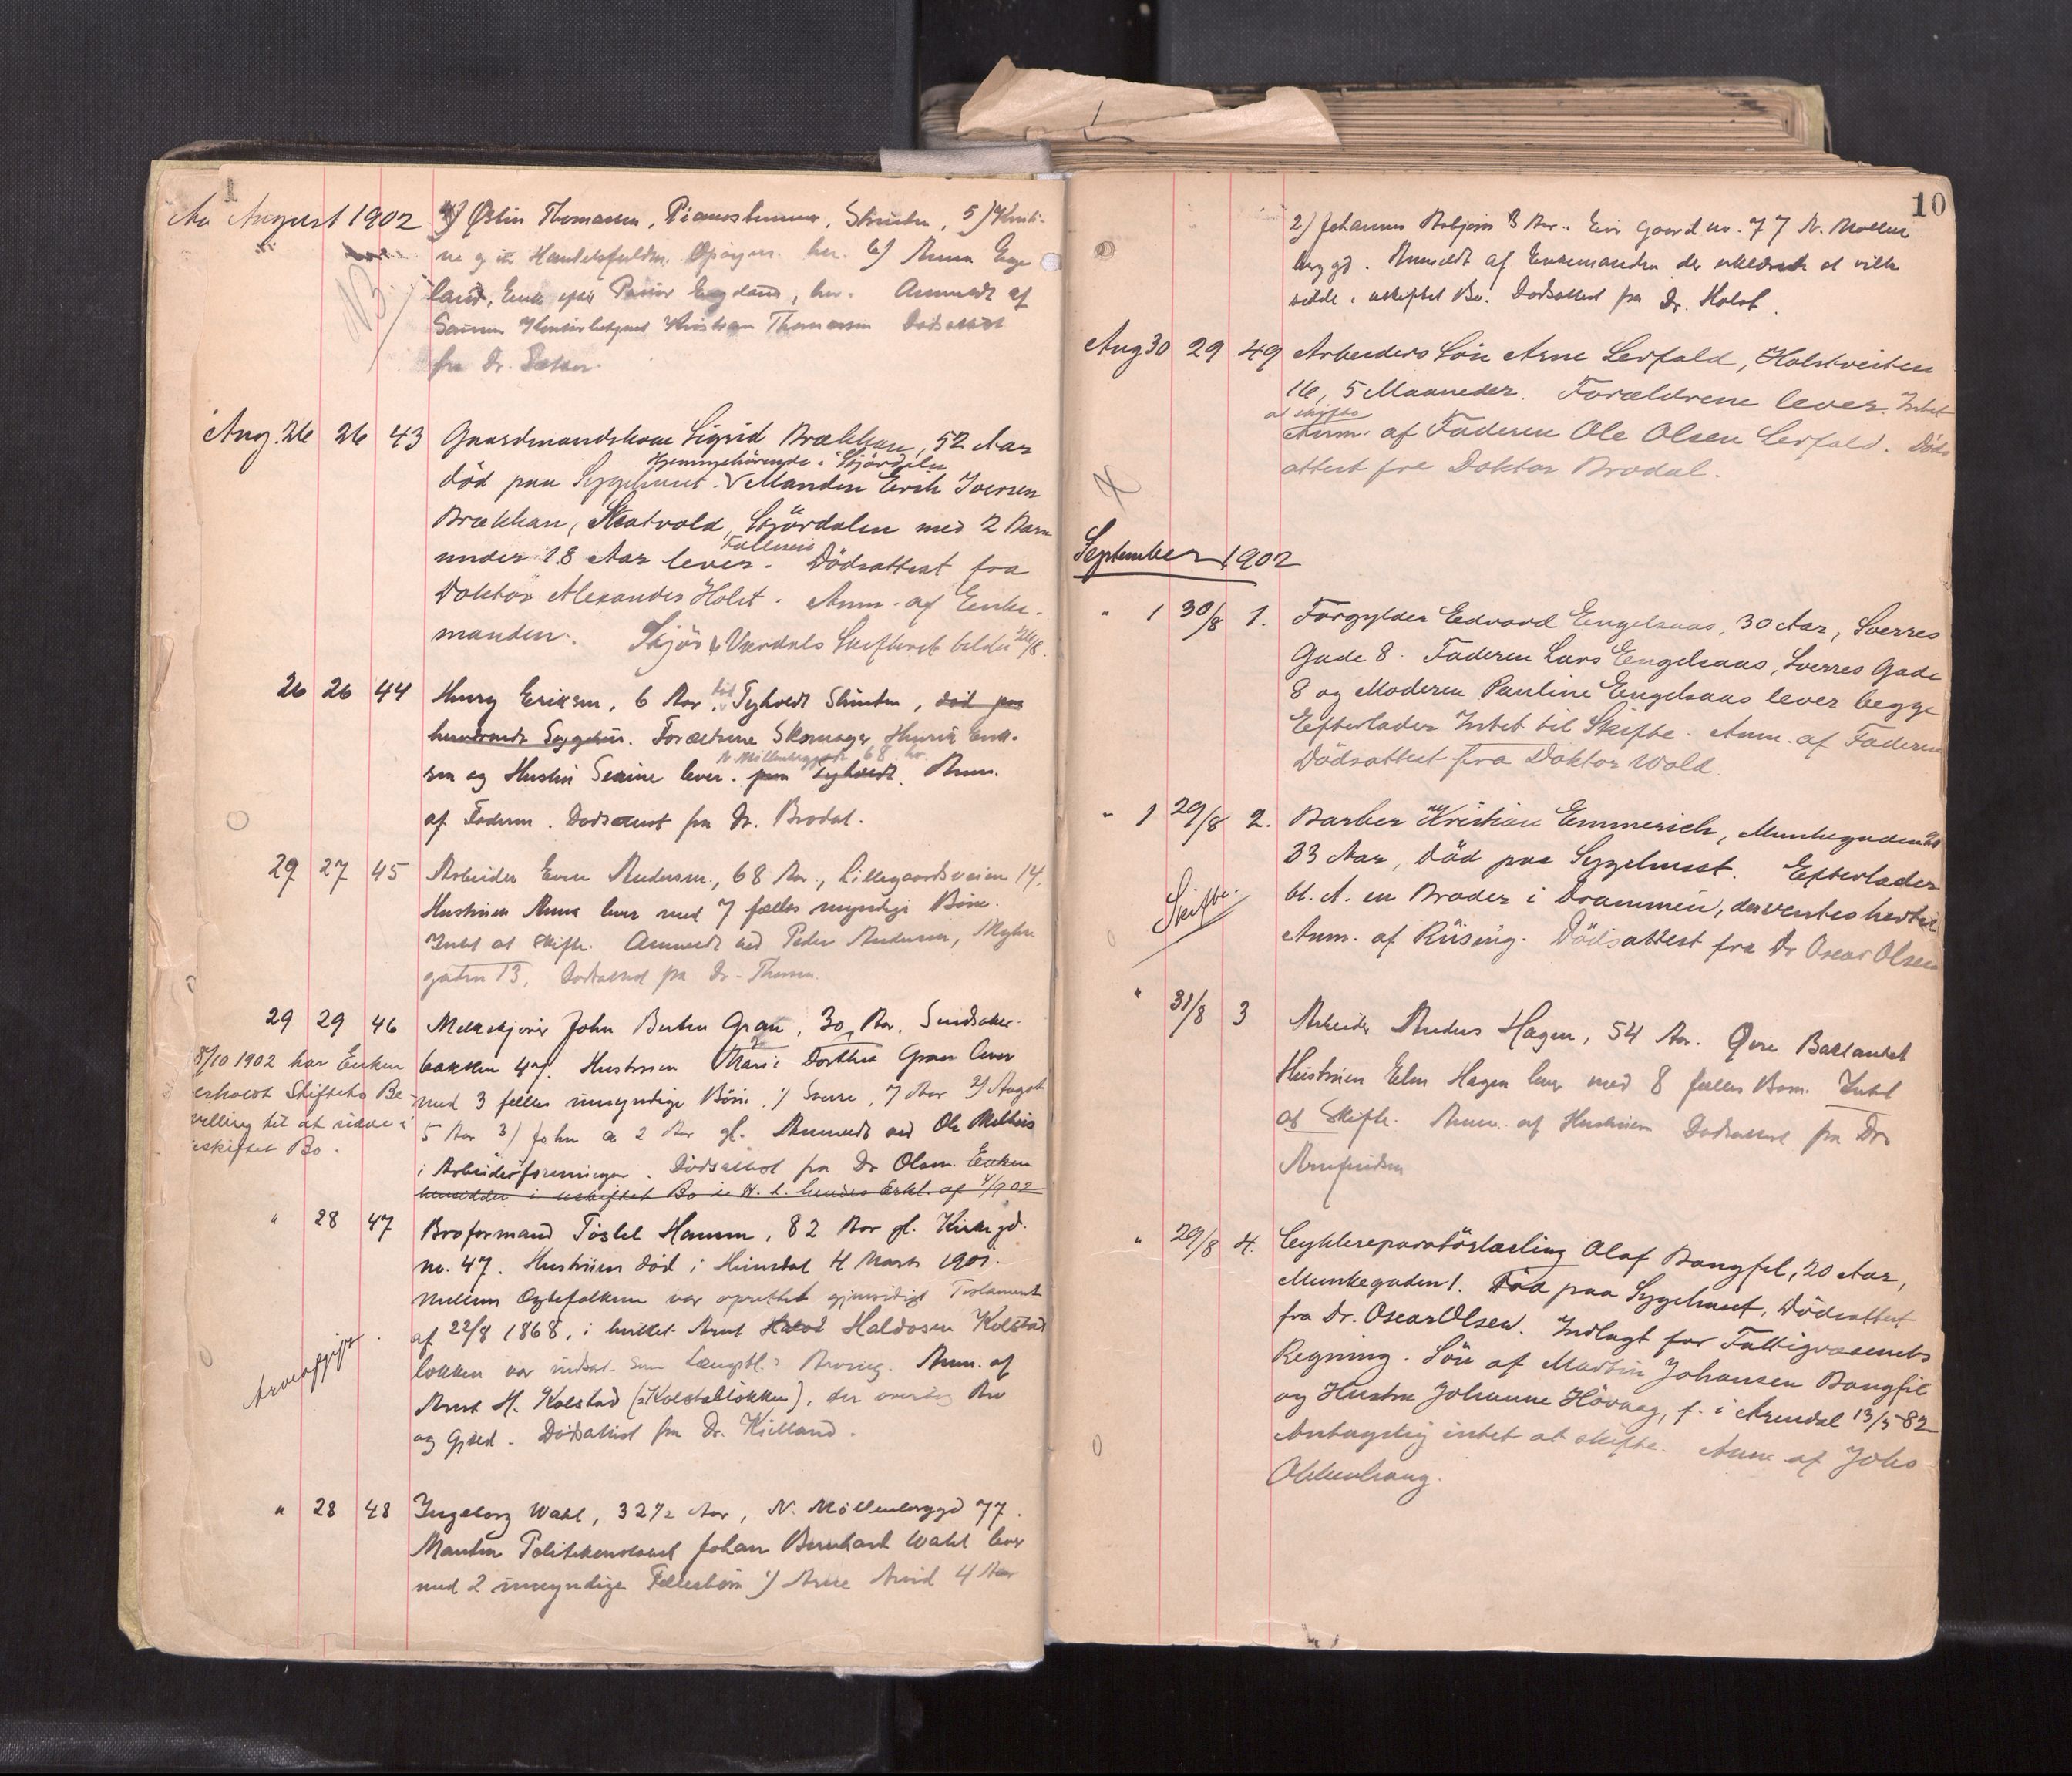 August 1902
4) Østin Thomassen, Pianostemmer, Strinden, 5) Kristi-
ne g. m. Handelsfuldm. her. 6) Anna Enge
land, Enke efter England, her. Anmeldt af
Sønnen Kristian Thomassen Dødsattest
fra Dr.
NB.
Aug. 26 26 43 Gaardmandskone Sigrid Brækkan, 52 Aar
Hjemmehörende i Stjördalen
död paa Sygehuset. Manden Erik Iversen
Brækkan, Skatvold, Stjördalen med 2 Barn
Fælleseie
under 18 Aar lever. Dödsattest fra
Doktor Alexander Holst. Anm. af Enke-
manden. Stjör & Værdals Skifteret tilskr 26/8.
26 26 44 Henry Eriksen, 6 Aar, Tyholdt Strinden, död paa
herværende Sygehus. Forældrene Skomager Henrik Erik-
N. Möllenberggade 68 hr.
sen og Hustru lever. paa Tyholdt. Anm.
af Faderen. Dødsattest fra Dr. Brodal.
29 27 45 Arbeider Even Andersen, 68 Aar, Lillegaardsveien 14.
Hustruen Anna lever med 7 fælles myndige Börn.
Intet at skifte. Anmeldt ved Peder Andersen,
gaden 13. Dødsattest fra Dr. Thesen.
29 29 46 Melkekjører John Gran, 30 Aar,
bakken 4. Hustruen Marie Dorthea Gran lever
med 3 fælles umyndige Börn, 1) Sverre, 7 Aar 2) August
5 Aar 3) John 2 Aar gl. Anmeldt ved Ole
i Arbeiderforeningen. Dødsattest fra Dr Olsen. Enken
hensidder i uskiftet Bo i H. t. hendes Erkl. af 4/9 02
8/10 1902 har Enken
erholdt Skiftets Be-
villing til at sidde i
uskiftet Bo.
" 28 47 Broformand Töstel Hansen, 82 Aar gl. Kirkegd.
no. 47. Hustruen död i Hendes 4 Marts 1901.
Mellem Ægtefolkene var oprettet gjensidigt Testament
af 22/8 1868, i hvilket Arnt Haldosen Kolstad
lökken var indsat som Længstl.s Arving. Anm. af
Arnt H. Kolstad (Kolstadlökken), der overtog Arv
og Gjæld. Dödsattest fra Dr. Kielland.
Arveafgift.
" 28 48 Ingeborg Wahl, 32 1/2 Aar, N. Möllenberggd 77.
Manden Politikonstabel Johan Bernhard Wahl lever
med 2 umyndige Fællesbörn 1) Arne Arvid 4 Aar
10
2) Johannes Asbjörn 3 Aar. Eier Gaard no. 77 N. Mollen
berggd. Anmeldt af Enkemanden der erklærede at ville
sidde i uskiftet Bo. Dødsattest fra Dr. Holst.
Aug 30 29 49 Arbeiders Sön Arne Lerfald, Holstveiten
16, 5 Maaneder. Forældrene lever. Intet
at skifte
Anm. af Faderen Ole Olsen Lerfald. Döds
attest fra Doktor Brodal.
September 1902
" 1 30/8 1. Forgylder Edvard Engelsaas, 30 Aar, Sverres
Gade 8. Faderen Lars Engelsaas, Sverres Gade
8 og Moderen Pauline Engelsaas lever begge
Efterlader Intet til Skifte. Anm. af Faderen
Dödsattest fra Doktor Wold.
" 1 29/8 2. Barber Kristian Emmerich, Munkegaden 20
33 Aar, Död paa Sygehuset. Efterlader
bl. A. en Broder i Drammen, der ventes hertil
Anm. af Riising. Dödsattest fra Dr Oscar Olsen
Skifte.
" 31/8 3 Arbeider Anders Hagen, 54 Aar. Øvre Baklandet
Hustruen Elen Hagen lever med 8 fælles Born. Intet
at Skifte. Anm. af Hustruen Dødsattest fra Dr.
Arnfindsen
" 29/8 4. Cyklereparatörlærling Olaf Bangfil, 20 Aar,
Munkegaden 1. Död paa Sygehuset, Dödsattest
fra Dr. Oscar Olsen. Indlagt for Fattigvæsenets
Regning. Sön af Martin Johansen Bangfil
og Hustru Johanne Hövaag, f. i Arendal 13/5 82
Antagelig intet at skifte. Anm af Johs
Okkenhaug.